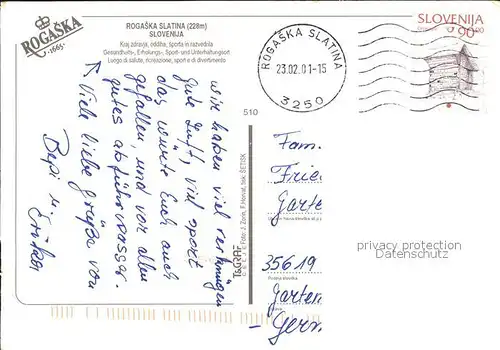 ROGAŠKA
·1665·
ROGAŠKA SLATINA (228m)
SLOVENIJA
Kraj zdravja, oddiha, športa in razvedrila
Gesundheits-, Erholungs-, Sport- und Unterhaltungsort
Luogo di salute, ricreazione, sport e di divertimento
ROGAŠKA SLATINA
23.02.01-15
3250
SLOVENIJA
90
510
wir haben viel vergnügen
gute Luft, viel sport
das würde Euch auch
gefallen, und vor allen
gutes abführwasser.
Viele liebe Grüße von
Bepi u. Erika
T&GRAF
Foto: J. Zorin, F. Horvat, tisk: ŠETISK
Fam.
Frie
Garte
35619
Garten
Germ
privacy protection
Datenschutz